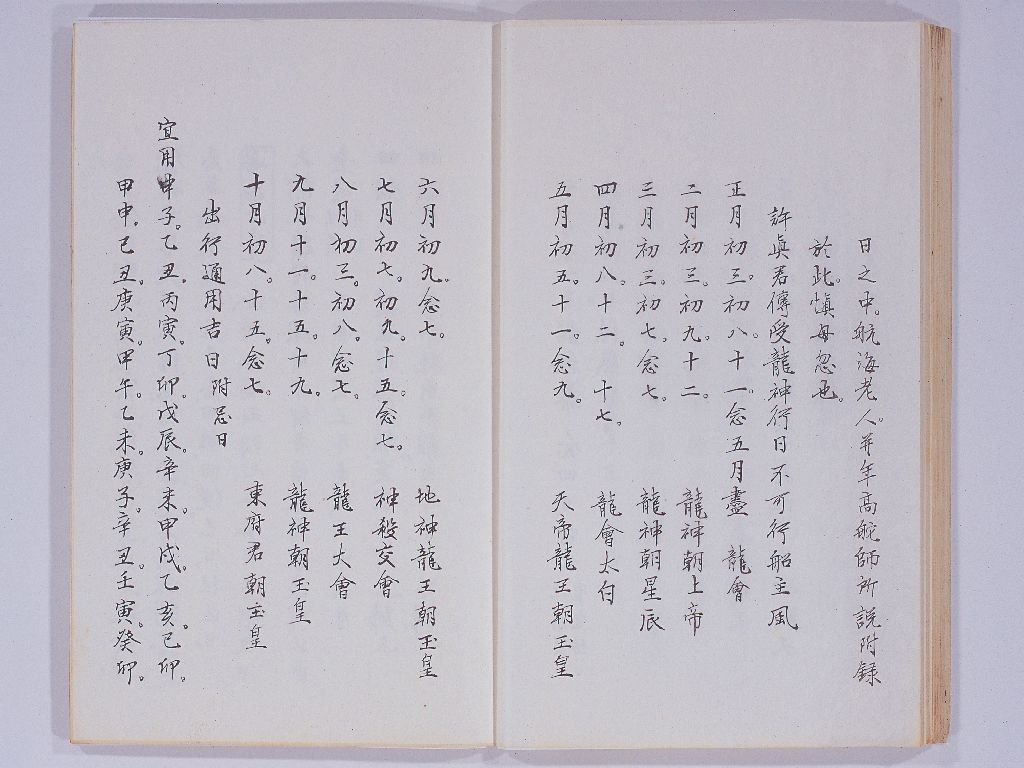 日之中。航海老人。并年高舵師所説附録
於此。慎毋忽也。
許眞君傳受龍神行日不可行船主風
正月初三。初八。十一。念五月盡 龍會
二月初三。初九。十二。 龍神朝上帝
三月初三。初七。念七。 龍神朝星辰
四月初八。十二。十七。 龍會太白
五月初五。十一。念九。 天帝龍王朝玉皇
六月初九。念七。 地神龍王朝玉皇
七月初七。初九。十五。念七。 神殺交會
八月初三。初八。念七。 龍王大會
九月十一。十五。十九。 龍神朝玉皇
十月初八。十五。念七。 東府君朝玉皇
出行通用吉日附忌日
宜用甲子。乙丑。丙寅。丁卯。戊辰。辛未。甲戌。乙亥。己卯。
甲申。己丑。庚寅。甲午。乙未。庚子。辛丑。壬寅。癸卯。